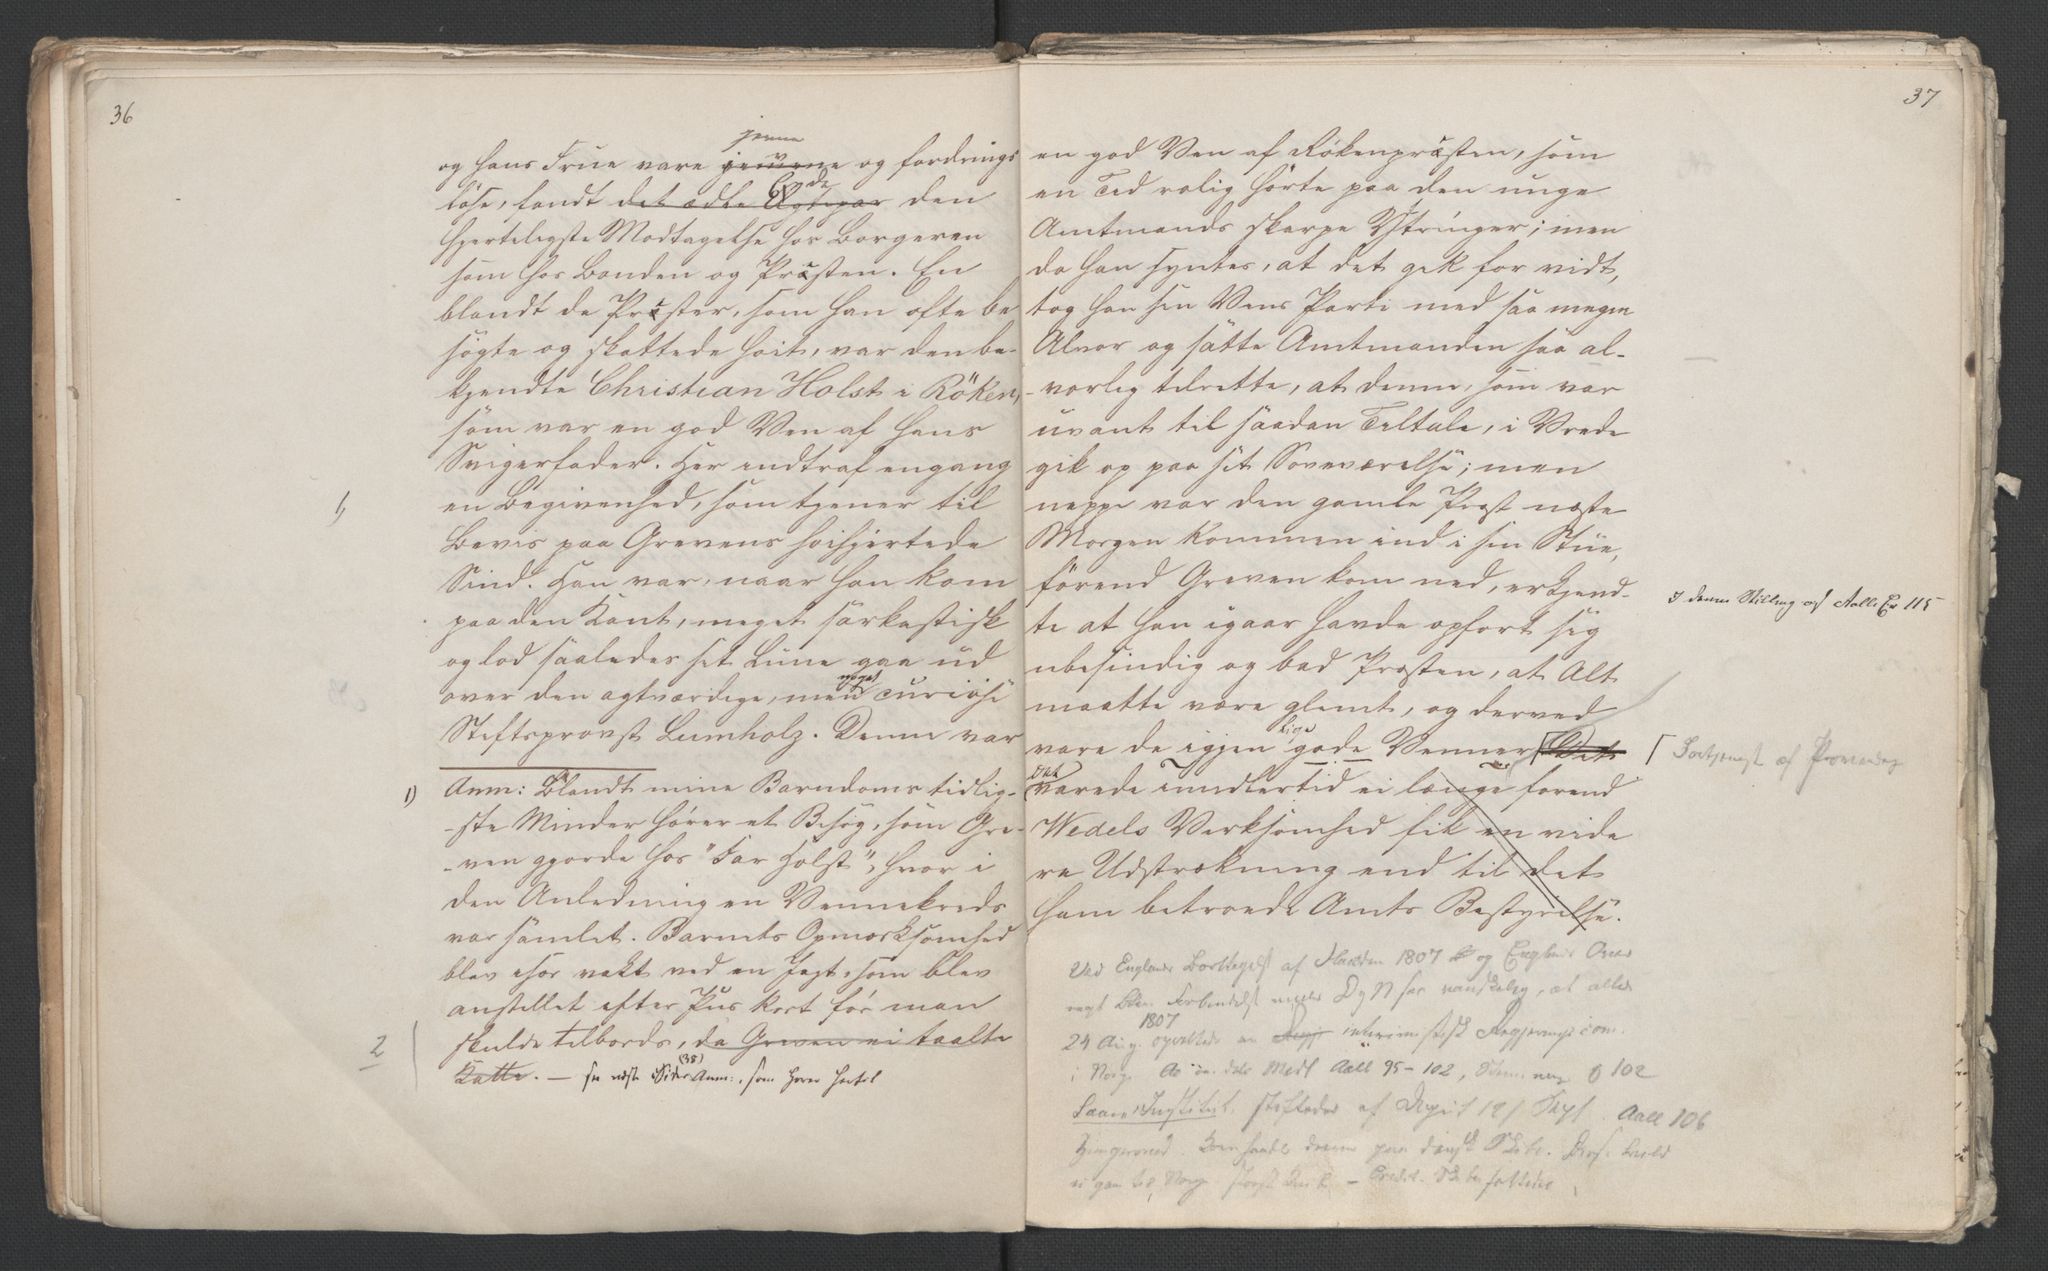 36
jevne
og hans Frue vare jevne og fordrings
løse, fandt det ædle Ægtepar den
Begge de
hjerteligste Modtagelse hos Borgeren
som hos Bonden og Præsten. En
blandt de Præster, som han ofte be
søgte og skattede høit, var den be-
kjendte Christian Holst i Røken,
som var en god Ven af hans
Svigerfader. Her indtraf engang
1)
en Begivenhed, som tjener til
Bevis paa Grevens høihjertede
Sind. Han var, naar han kom
paa den Kant, meget sarkastisk
og lod saaledes sit Lune gaa ud
noget
over den agtværdige, men curiøse
Stiftsprovst Lumholz. Denne var
1) Anm: Blandt mine Barndoms tidlig-
-ste Minder hører et Besøg, som Gre-
-ven gjorde hos "Far Holst", hvor i
den Anledning en Vennekreds
var samlet. Barnets Opmærksomhed
blev især vakt ved en Jagt, som blev
anstillet efter Pus kort før man
2
skulde tilbords, da Greven ei taalte
Katte. — se næste Side (38) Anm:, som hører hertil
37
en god Ven af Røkenpræsten, som
en Tid rolig hørte paa den unge
Amtmands skarpe Yttringer; men
da han syntes, at det gik for vidt,
tog han sin Vens Parti med saa megen
Alvor og satte Amtmanden saa al-
-vorlig tilrette, at denne, som var
uvant til saadan Tiltale, i Vrede
gik op paa sit Soveværelse; men
neppe var den gamle Prost næste
Morgen kommen ind i sin Stue,
førend Greven kom ned, erkjend-
I denne Stilling Aall Er 115
te at han igaar havde opført sig
ubesindig og bad Provsten, at Alt
maatte være glemt, og derved
lige
vare de igjen gode Venner. Det
Det
varede imidlertid ei længe førend
Wedels Virksomhed fik en vide
re Udstrækning end til det
ham betroede Amts Bestyrelse.
Ved Englands Borttagelse af Flaaden 1807 og Englands
Forbindelse D og N saa vanskelig, at allerede
1807
24 Aug. oprettedes en interimistisk Regjeringscom.
i Norge. Aall 95-102, 102
Laane Institut, stiftedes af Aall 106